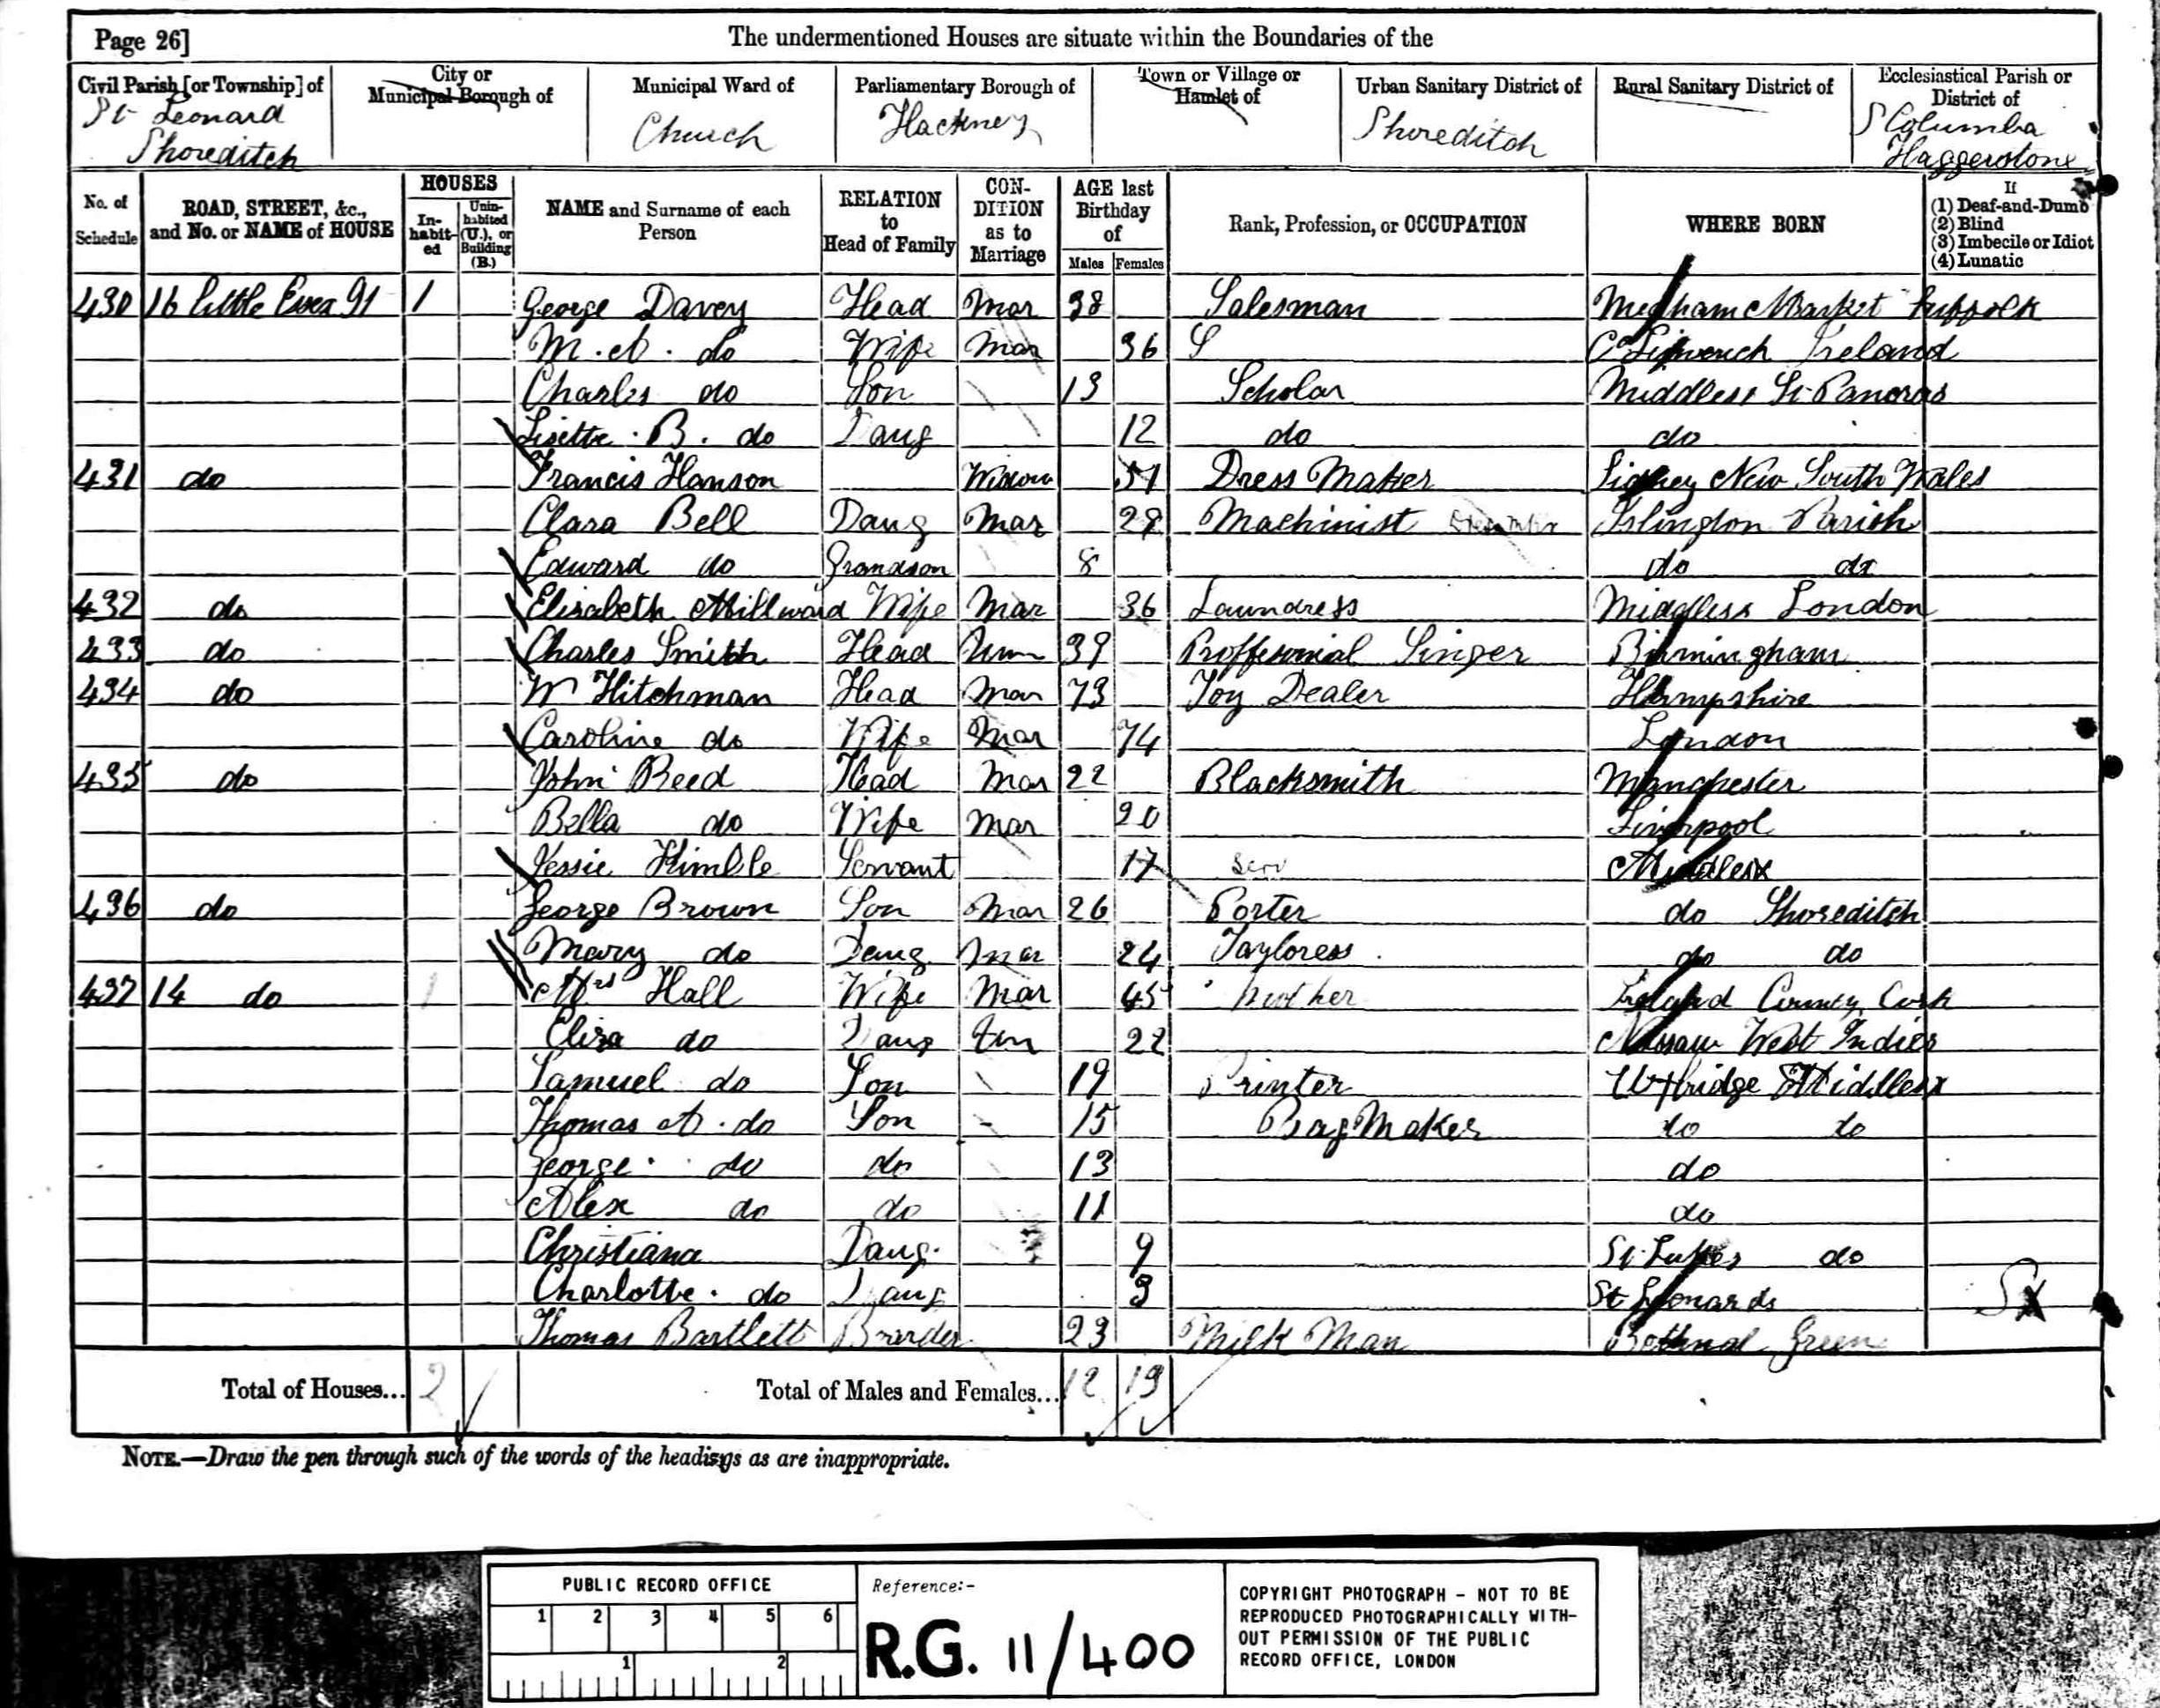 Page 26]
The undermentioned Houses are situate within the Boundaries of the
Civil Parish [or Township] of
St Leonard
Shoreditch
City or
Municipal Borough of
Municipal Ward of
Church
Parliamentary Borough of
Hackney
Town or Village or
Hamlet of
Urban Sanitary District of
Shoreditch
Rural Sanitary District of
Ecclesiastical Parish or
District of
St Columba
Haggerstone
No. of
Schedule
ROAD, STREET, &c.,
and No. or NAME of HOUSE
HOUSES
In-
habit-
ed
Unin-
habited
(U.), or
Building
(B.)
NAME and Surname of each
Person
RELATION
to
Head of Family
CON-
DITION
as to
Marriage
AGE last
Birthday
of
Males Females
Rank, Profession, or OCCUPATION
WHERE BORN
If
(1) Deaf-and-Dumb
(2) Blind
(3) Imbecile or Idiot
(4) Lunatic
430 16 little 1 George Davey Head Mar 38 Salesman Market Suffolk
M. A. do Wife Mar 36 Ireland
Charles do Son 13 Scholar Middlesx St Pancras
Lisette B. do Daug 12 do do
431 do Francis Hanson Widow 51 Dress Maker Sidney New South Wales
Clara Bell Daug Mar 29 Machinist Islington Parish
Edward do Grandson 8 do do
432 do Elisabeth Millward Wife Mar 36 Laundress Middlesx London
433 do Charles Smith Head Unm 39 Proffesional Singer Birmingham
434 do Wm Hitchman Head Mar 73 Toy Dealer Hampshire
Caroline do Wife Mar 74 London
435 do John Reed Head Mar 22 Blacksmith Manchester
Bella do Wife Mar 20 Liverpool
Jessie Kimble Servant 17 Serv Middlesx
436 do George Brown Son Mar 26 Porter do Shoreditch
Mary do Daug Mar 24 Tayloress do do
437 14 do 1 Mrs Hall Wife Mar 45 Mother Ireland County Cork
Eliza do Daug Un 22 Nassaw West Indies
Samuel do Son 19 Printer Uxbridge Middlesx
Thomas A. do Son 15 Bag Maker do do
George do do 13 do
Alex do do 11 do
Christiana Daug. 9 St Lukes do
Charlotte do Daug 3 St Leonards
Thomas Bartlett Boarder 23 Milk Man Bethnal Green
Total of Houses... 2 Total of Males and Females... 12 13
NOTE.—Draw the pen through such of the words of the headings as are inappropriate.
PUBLIC RECORD OFFICE
1 2 3 4 5 6
1 2
Reference:-
R.G. 11/400
COPYRIGHT PHOTOGRAPH - NOT TO BE
REPRODUCED PHOTOGRAPHICALLY WITH-
OUT PERMISSION OF THE PUBLIC
RECORD OFFICE, LONDON